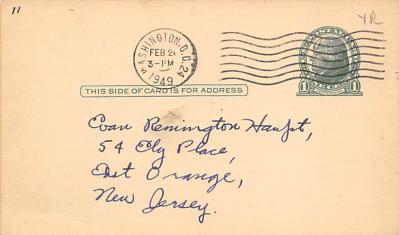 11
YR
WASHINGTON, D.C. 24
FEB 2
3-PM
1949
THIS SIDE OF CARD IS FOR ADDRESS
1 1
Evan Remington Haupt,
54 Ely Place,
East Orange,
New Jersey.